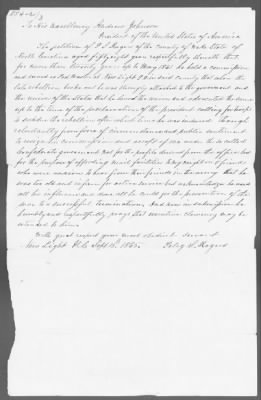 To His Excellency Andrew Johnson
President of the United States of America
The petition of P. S. Rogers of the county of Wake State of
North Carolina aged fifty eight years respectfully showeth that
for more than twenty years up to May 1861 he held a commission
and served as Post Master at New Light P O in said county that when the
late rebellion broke out he was strongly attached to the government and
the union of the States that he loved the union and advocated the same
up to the time of the proclamation of the president calling for troops
to subdue the rebellion after which time he was induced though
reluctantly from force of circumstances and public sentiment
to resign his commission and accept of one under the so called
Confederate government not for the profits derived from the office but
for the purpose of affording mail facilities to my neighbors & friends
who were anxious to hear from their friends in the army that he
was too old and infirm for active service but acknowledges he used
all his influence and done all he could for the prosecution of the
war to a successful termination. And now in submission he
humbly and respectfully prays that executive clemency may be
extended to him.
With great respect your most obedient servant
New Light N.C. Sept 1865. Peleg S. Rogers